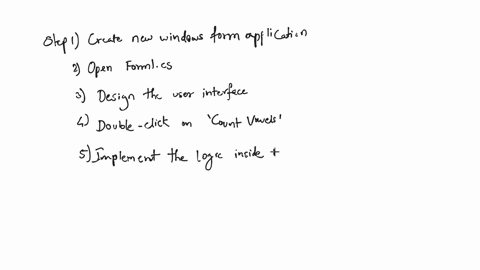 Step 1) Create new windows form application
2) Open Form1.cs
3) Design the user interface
4) Double-click on 'Count Vowels'
5) Implement the logic inside t